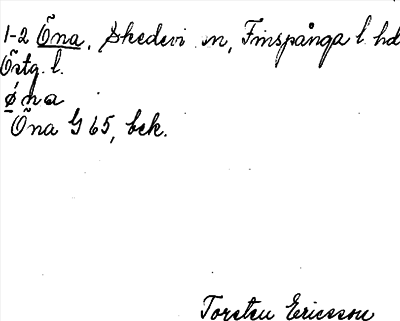 1-2 Õna, Skedevi sn, Finspånga l. hd
Östg. l.
ǿna
Õna G 65, bek.
Torsten Ericsson